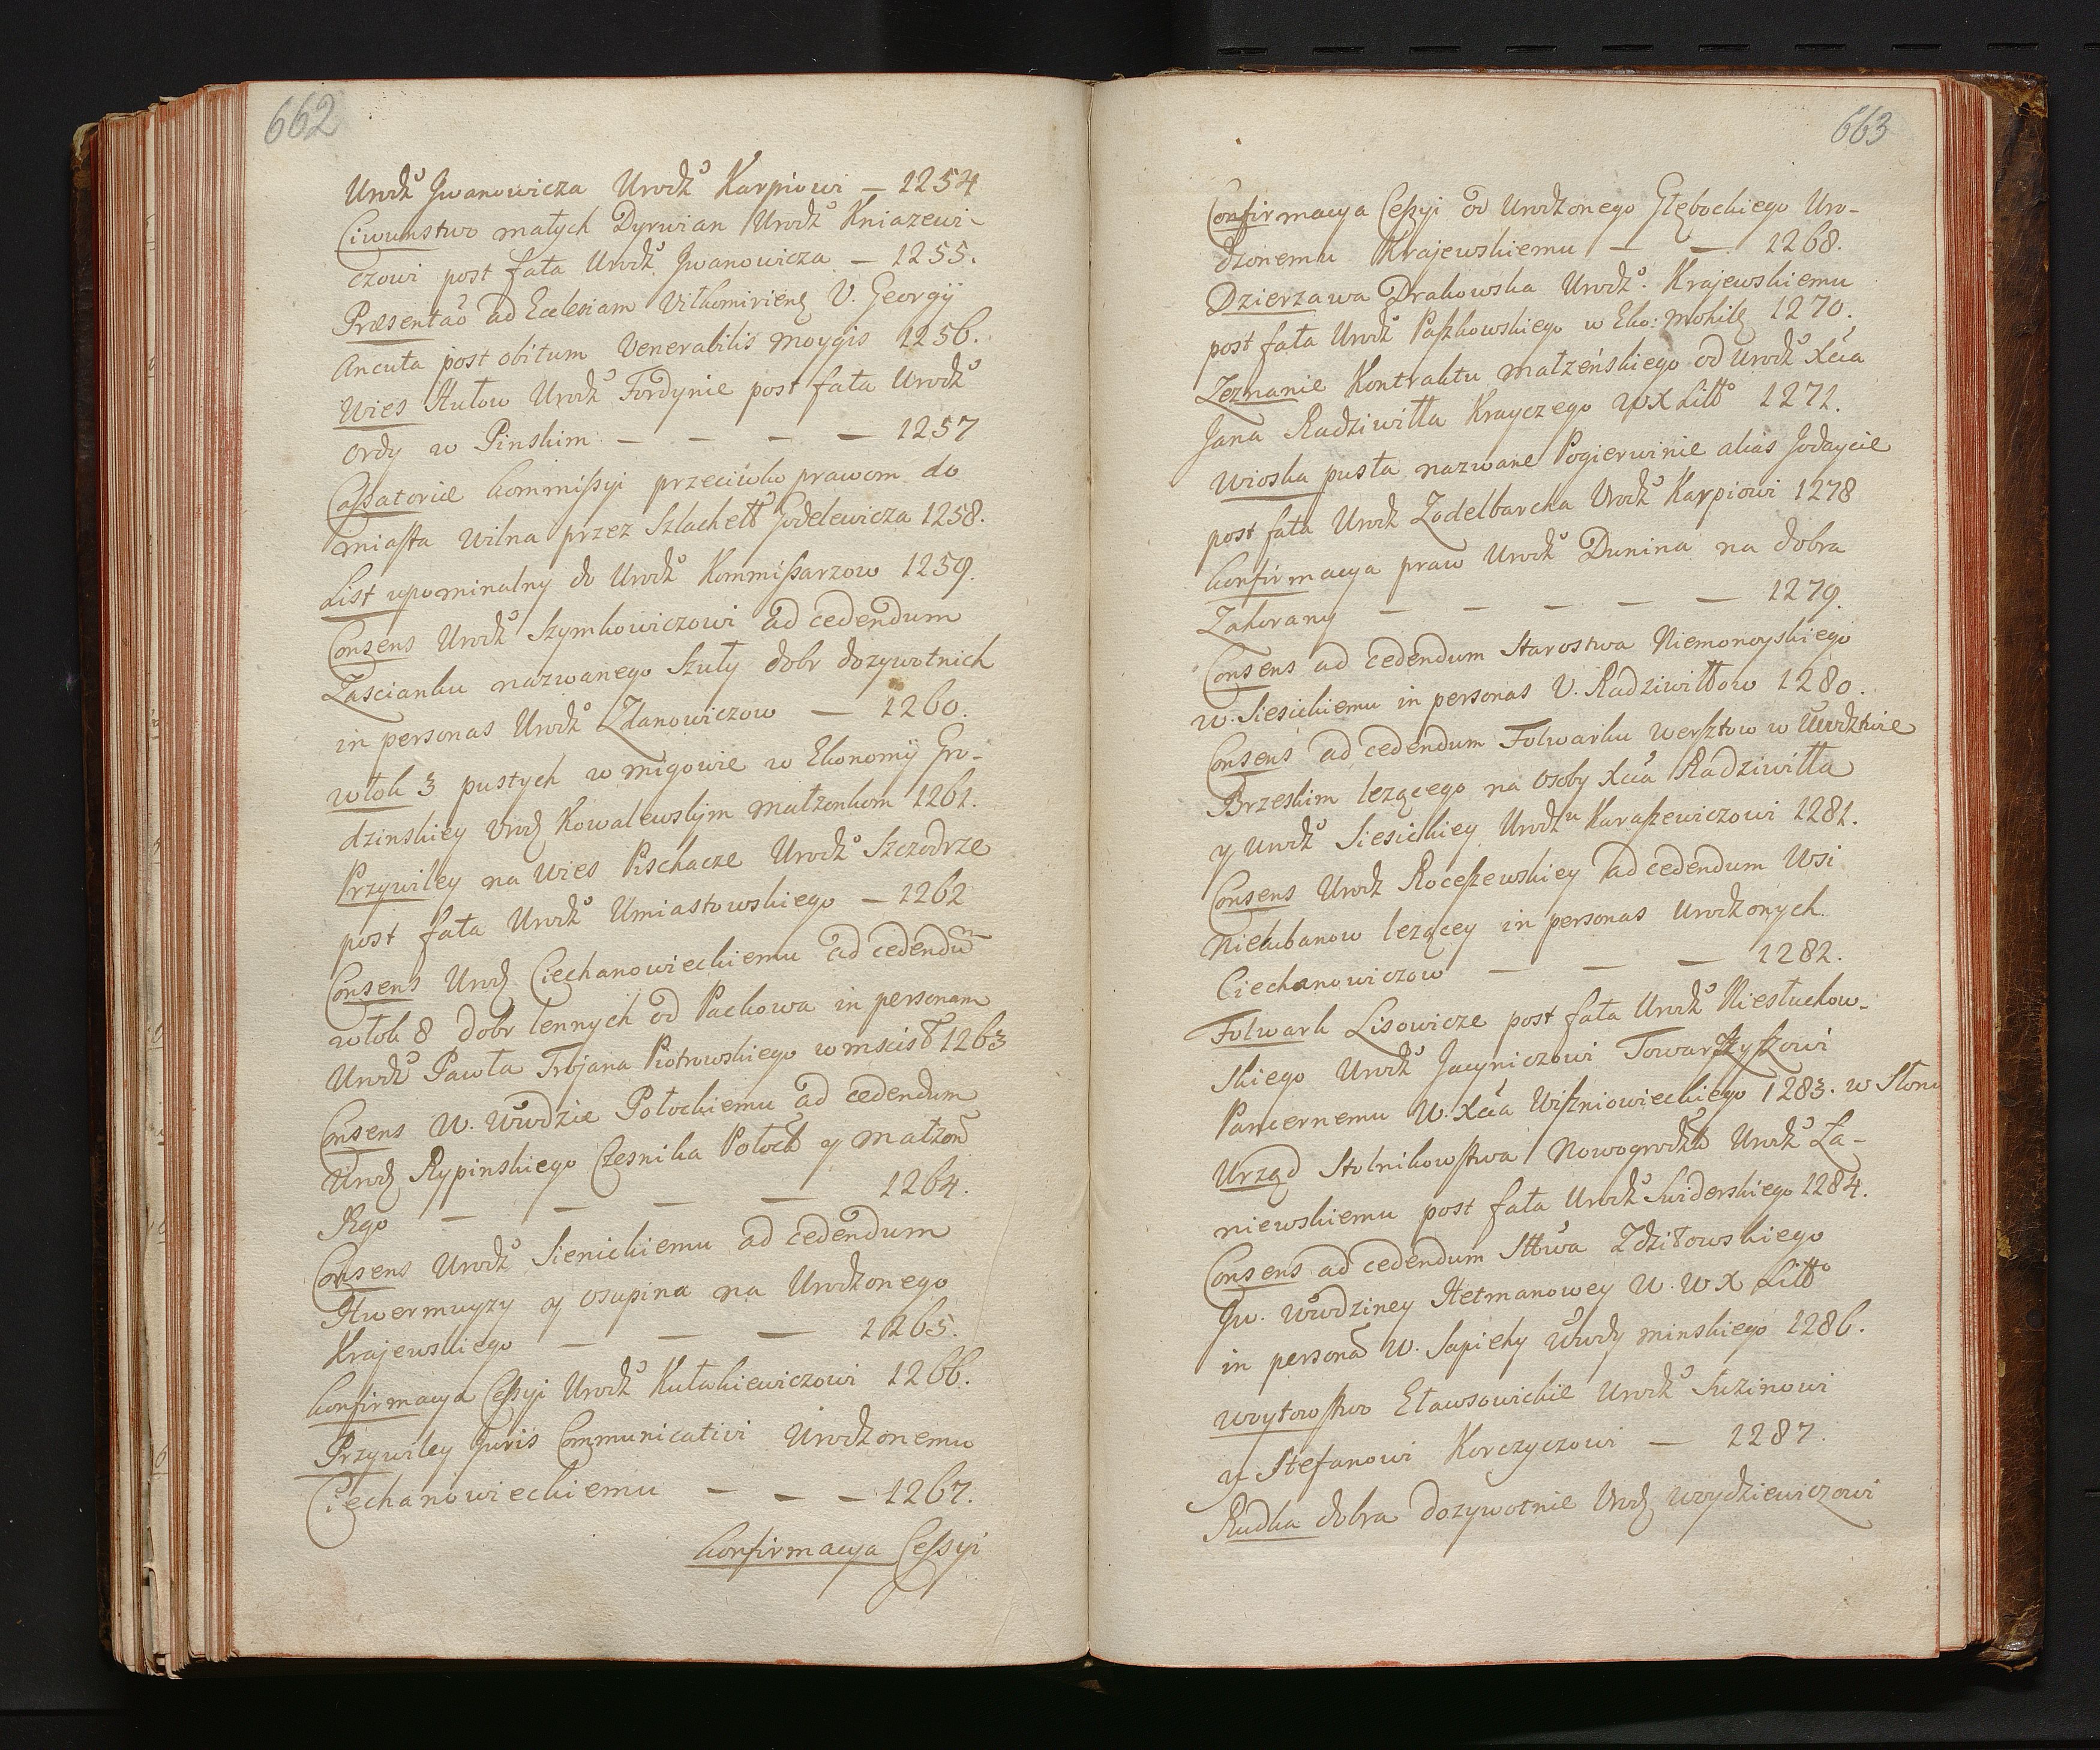 662
Urodz͠o Jwanowicza Urodz͠o Karpiowi — 1254
Ciwunstwo małych Dyrwian Urodz͠o Kniazewi-
czowi post fata Urodz͠o Jwanowicza — 1255.
Præsentaõ ad Ecclesiam Vilkomirienẽ V. Georgij
Ancuta post obitum Venerabilis Moygis 1256.
Wies Stutow Urodz͠o Fordynie post fata Urodz͠o
Ordy w Pinskim — — — — 1257
Cassatoriæ Kommissyi przeciwko prawom do
miasta Wilna przez Szlachett͠o Jodelewicza 1258.
List upominalny do Urodz͠o Kommissarzow 1259.
Consens Urodz͠o Szymkowiczowi ad cedendum
Zascianku nazwanego Szuty dobr dozywotnich
in personas Urodz͠o Zdanowiczow — 1260.
Włok 3 pustych w Migowie w Ekonomij Gro-
dzinskiey Urodz Kowalewskjm małzonkom 1261.
Przywiley na Wies Pischacze Urodz͠o Szczodrze
post fata Urodz͠o Umiastowskiego — 1262
Consens Urodz Ciechanowieckiemu ad cedendũ
włok 8 dobr lennych od Pachowa in personam
Urodz͠o Pawła Trojana Piotrowskiego w Mscisł 1263
Consens W. Wwodzie Połockiemu ad cedendum
Urodz Rypinskiego Czesnika Połock y małzon
Jego — — — — 1264.
Consens Urodz͠o Sienickiemu ad cedendum
Hwermuyzy y Osupina na Urodzonego
Krajewskiego — — — 1265.
Konfirmacya Cessyi Urodz͠o Kułakiewiczowi 1266.
Przywiley Juris Communicativi Urodzonemu
Ciechanowieckiemu — — — 1267.
Konfirmacya Cessyi
663
Confirmacya Cessyi od Urodzonego Głębockiego Uro-
dzonemu Krajewskiemu — — 1268.
Dzierzawa Drakowska Urodz͠o. Krajewskiemu
post fata Urodz͠o Paszkowskiego w Eko: Mohilẽ 1270.
Zeznanie Kontraktu małzeńskiego od Urodz͠o Xcia
Jana Radziwiłła Krayczego WXLitt͠o 1271.
Wioska pusta nazwane Pogierwinie alias Jodaycie
post fata Urodz Zodelbarcka Urodz͠o Karpiowi 1278
Konfirmacya praw Urodz͠o Dunina na dobra
Zahorany — — — — — 1279.
Consens ad cedendum Starostwa Niemonoyskiego
W. Siesickiemu in personas V. Radziwiłłow 1280.
Consens ad cedendum Folwarku Wersztow w Wwodztwie
Brzeskim lezącego na Osoby Xcia Radziwiłła
y Urodz͠o Siesickiey Urodzu Karaszewiczowi 1281.
Consens Urodz Roceszewskiey ad cedendum Wsi
Nielubanow lezącey in personas Urodzonych
Ciechanowiczow — — — 1282.
Folwark Lisowicze post fata Urodz͠o Niesłuchow-
skiego Urodz͠o Jacyniczowi Towarzyszowi
Pancernemu W. Xcia Wiszniowieckiego 1283. w Słoni
Urząd Stolnikowstwa Nowogrodzk͠o Urodz͠o Ła-
niewskiemu post fata Urodz͠o Swiderskiego 1284.
Consens ad cedendum Sttwa Zdzitowskiego
Jw. Wwodziney Hetmanowey W. W X Litt͠o
in personã W. Sapiehy Wwdy Minskiego 1286.
Woytowstwo Eławsowickie Urodz͠o Suzinowi
y Stefanowi Korczyczowi — 1287.
Rudka dobra dozywotnie Urodz Woydziewiczowi